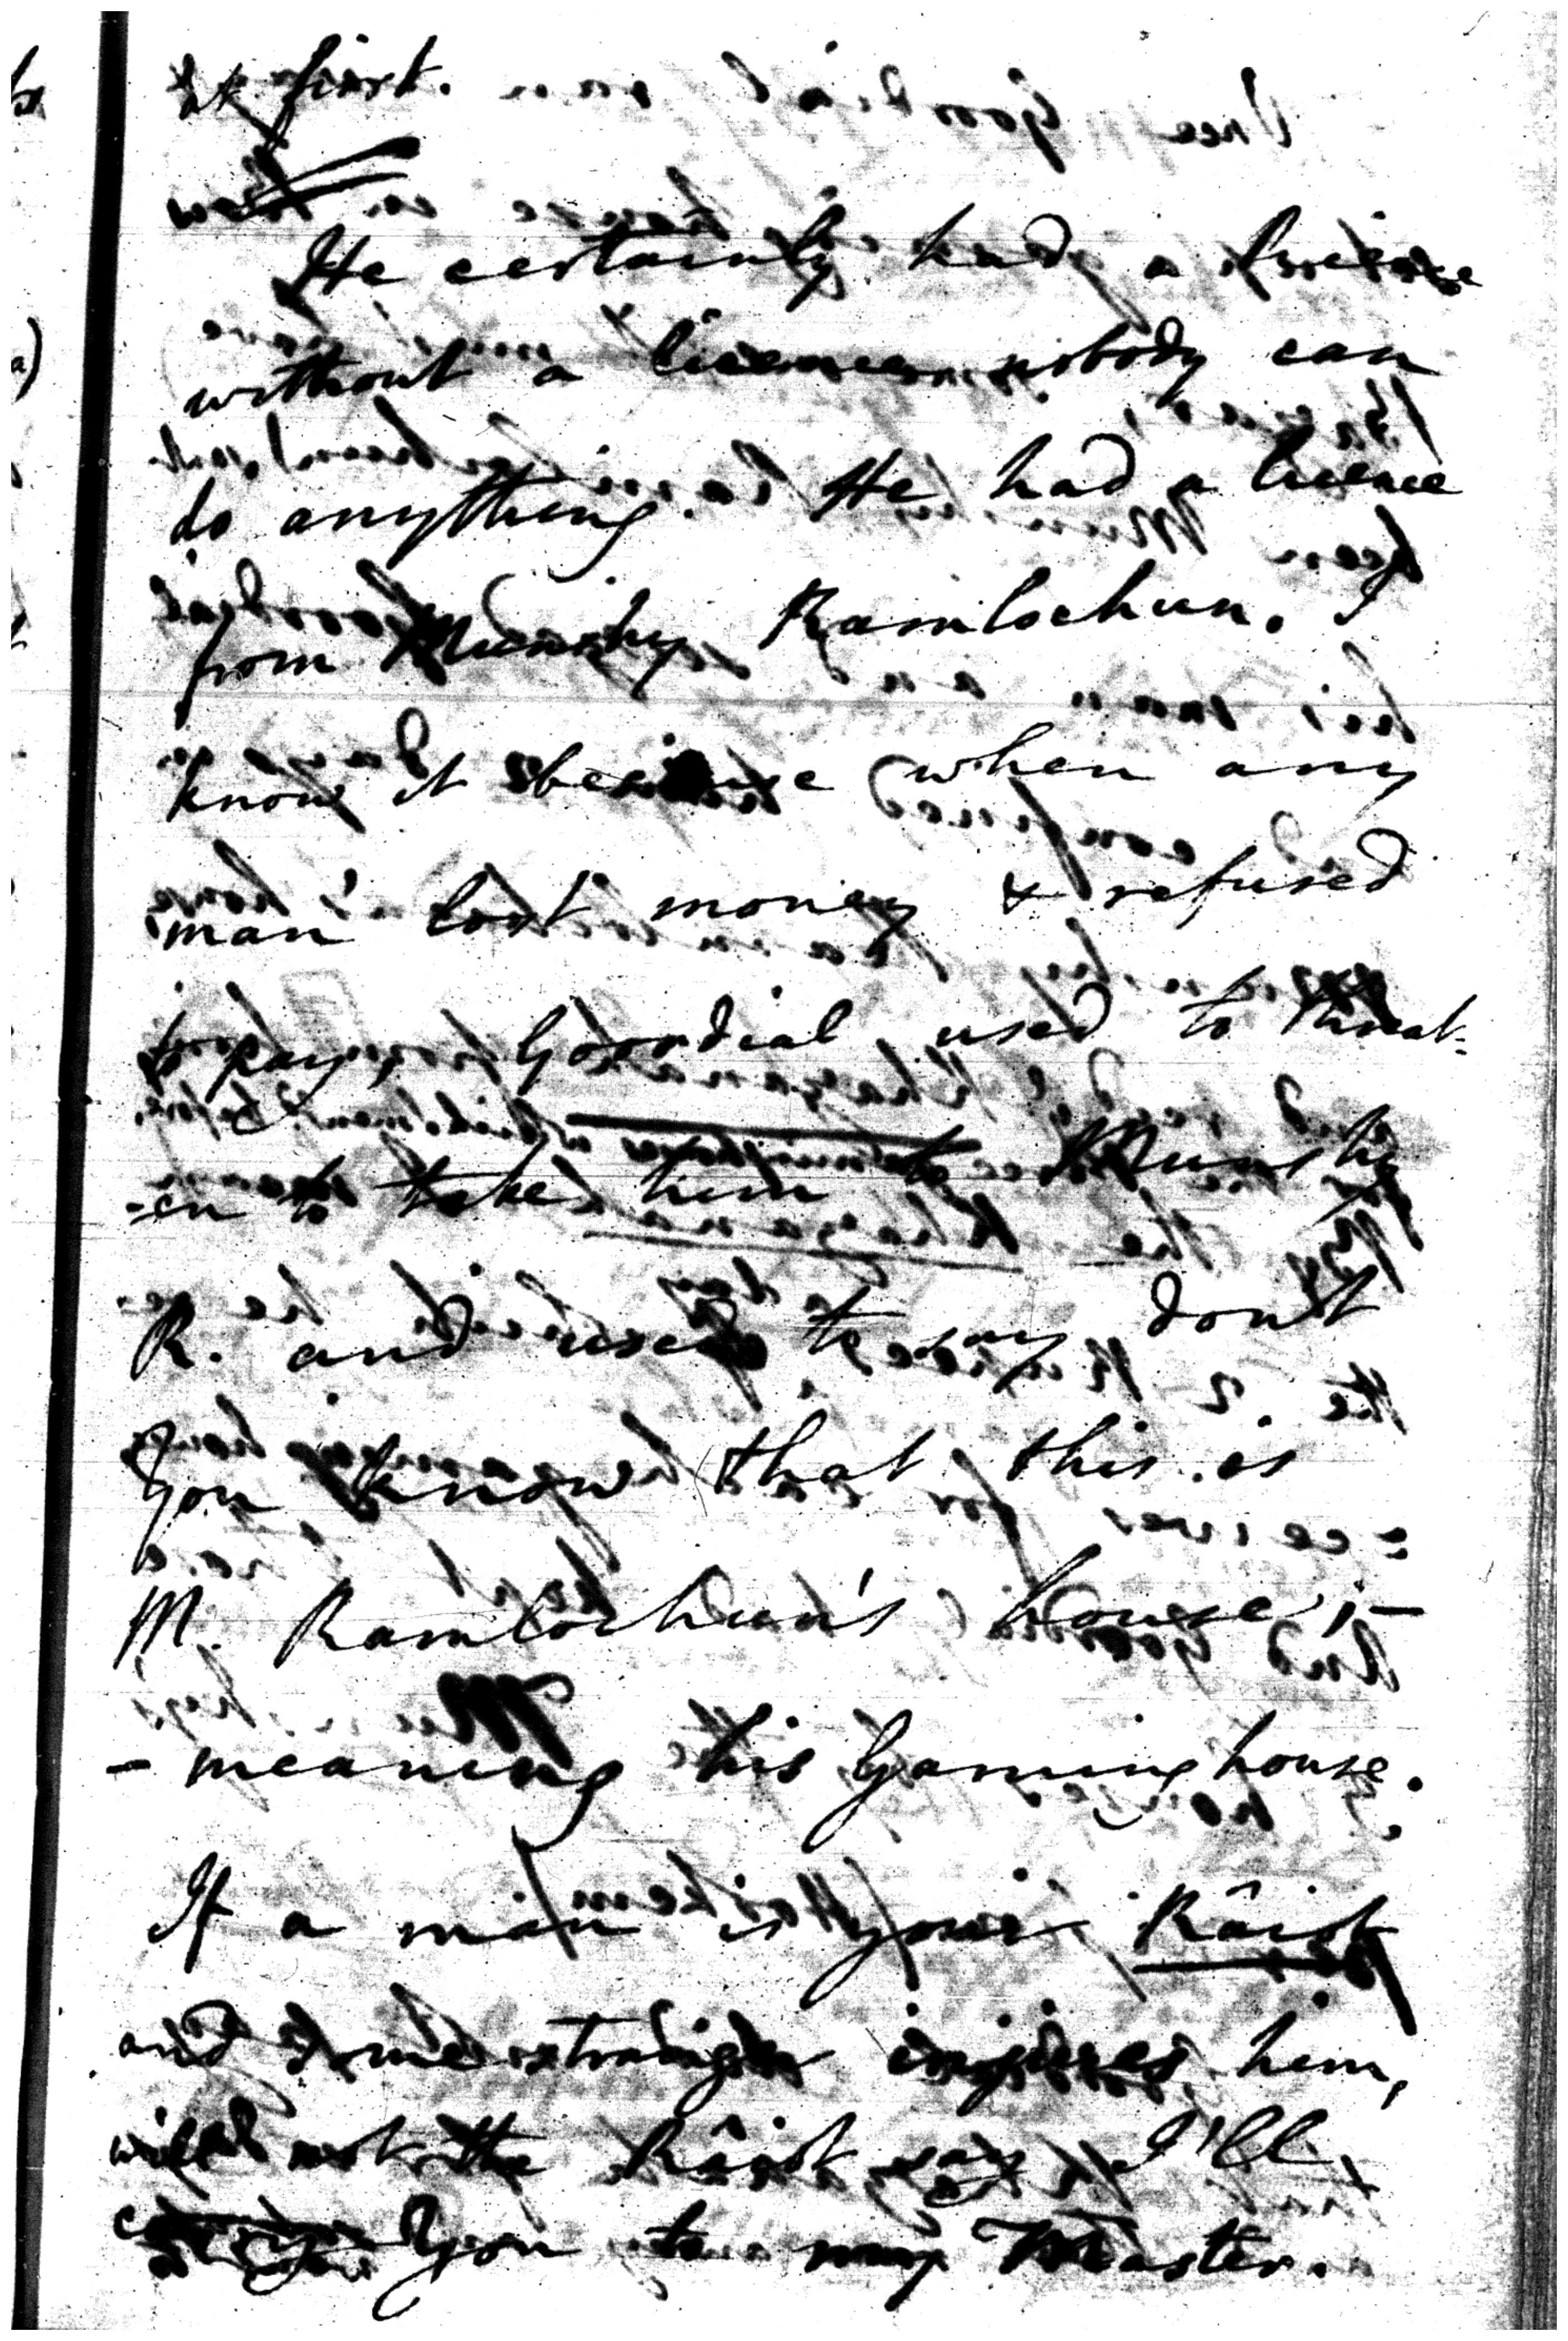 at first.
He certainly had a licence
without a licence nobody can
do anything. He had a licence
from Munshy Ramlochun. I
know it because when any
man lost money & refused
to pay, Goordial used to threat-
-en to take him to Munshy
R. and used to say don't
you know that this is
M. Ramlochun's house;-
- meaning his Gaming house.
If a man is your Râiot
and some stranger injures him,
will not the Râiot say I'll
carry you to my Master.